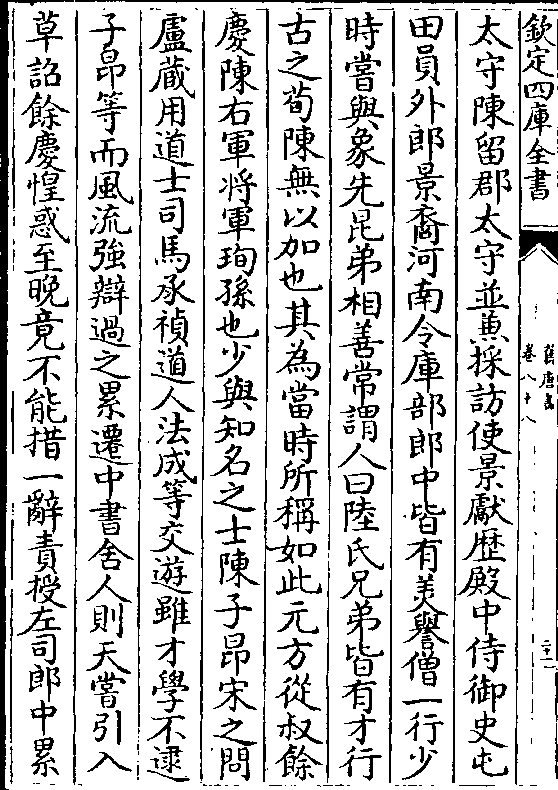 欽定四庫全書
舊唐書
卷八十八
太守陳留郡太守並兼採訪使景獻歴殿中侍御史屯
田員外郎景裔河南令庫部郎中皆有美譽僧一行少
時嘗與象先昆弟相善常謂人曰陸氏兄弟皆有才行
古之荀陳無以加也其為當時所稱如此元方從叔餘
慶陳右軍將軍珣孫也少與知名之士陳子昂宋之問
盧蔵用道士司馬承禎道人法成等交遊雖才學不逮
子昂等而風流強辯過之累遷中書舍人則天嘗引入
草詔餘慶惶惑至晚竟不能措一辭責授左司郎中累